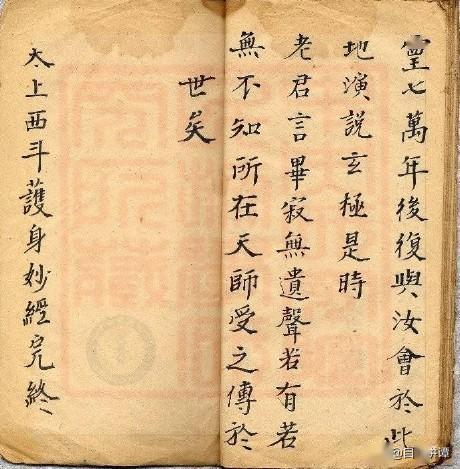 七萬年後復與汝會於此
地演説玄極是時
老君言畢寂無遺聲若有若
無不知所在天師受之傳於
世矣
太上西斗護身妙經完終